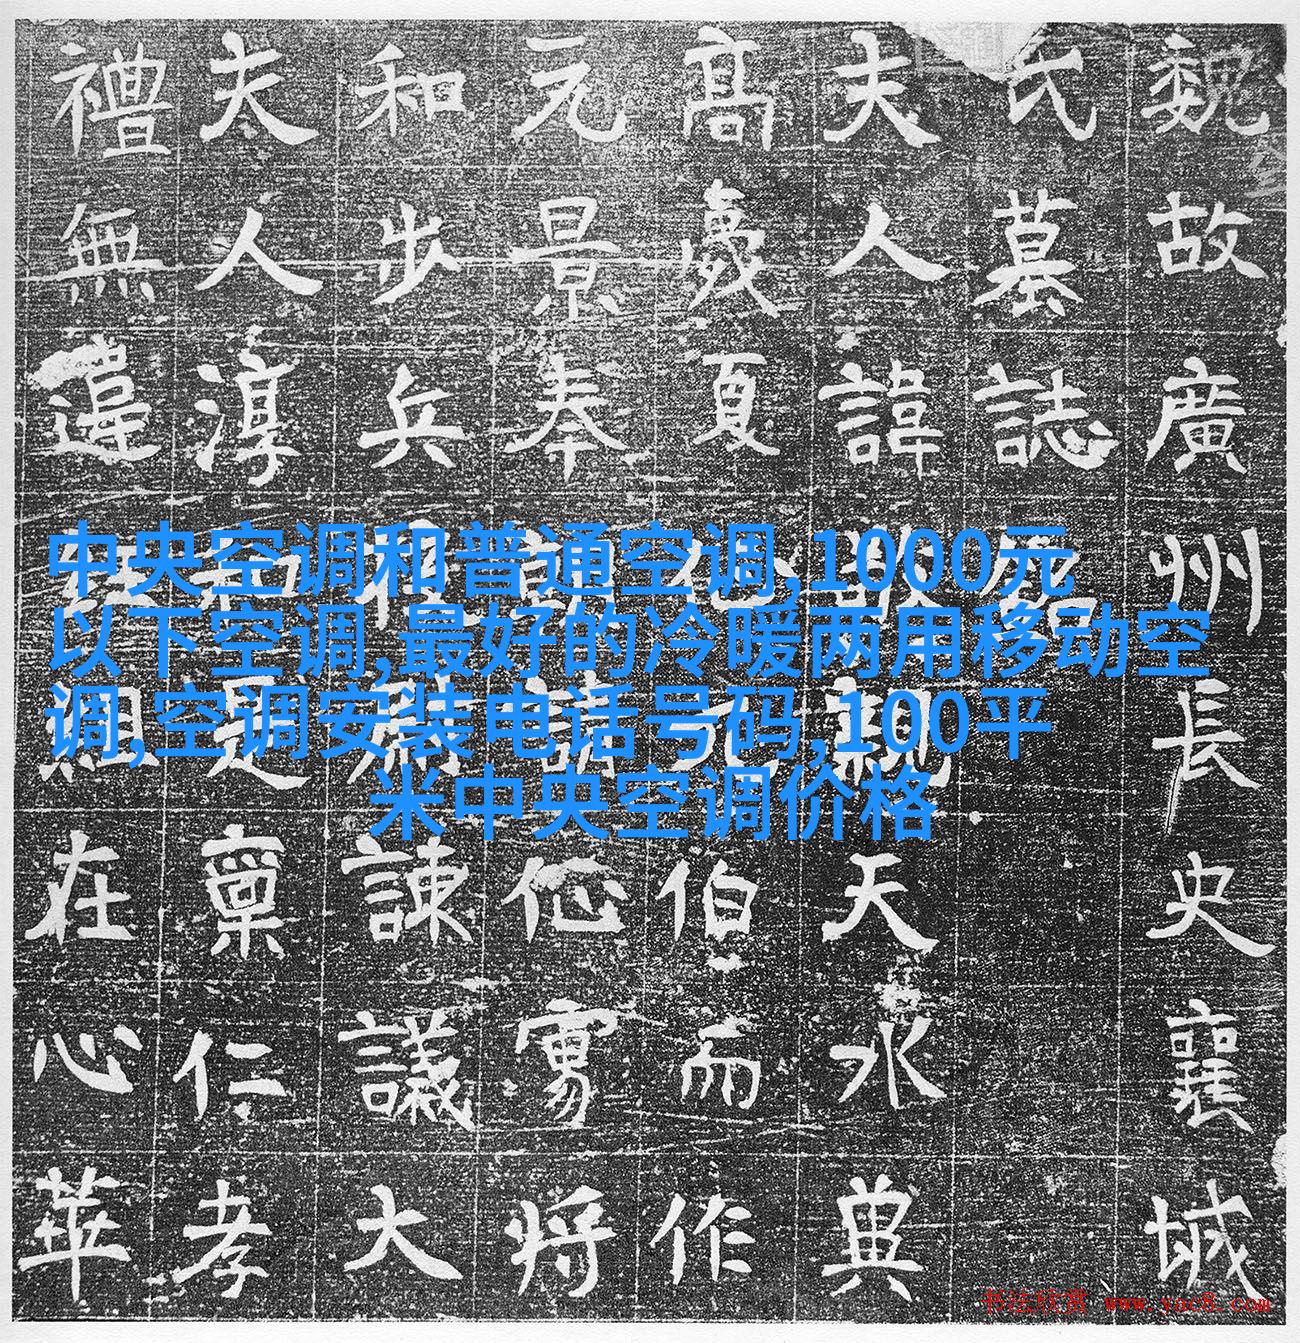 魏故廣州長史襄城
氏墓誌
夫人諱親天水
髙夏伯而作
元景奉將
和步兵諫議大
夫人淳稟仁孝
禮無違在心華
中央空调和普通空调,1000元
以下空调,最好的冷暖两用移动空
调,空调安装电话号码,100平
米中央空调价格
书法欣赏 www.yac8.com